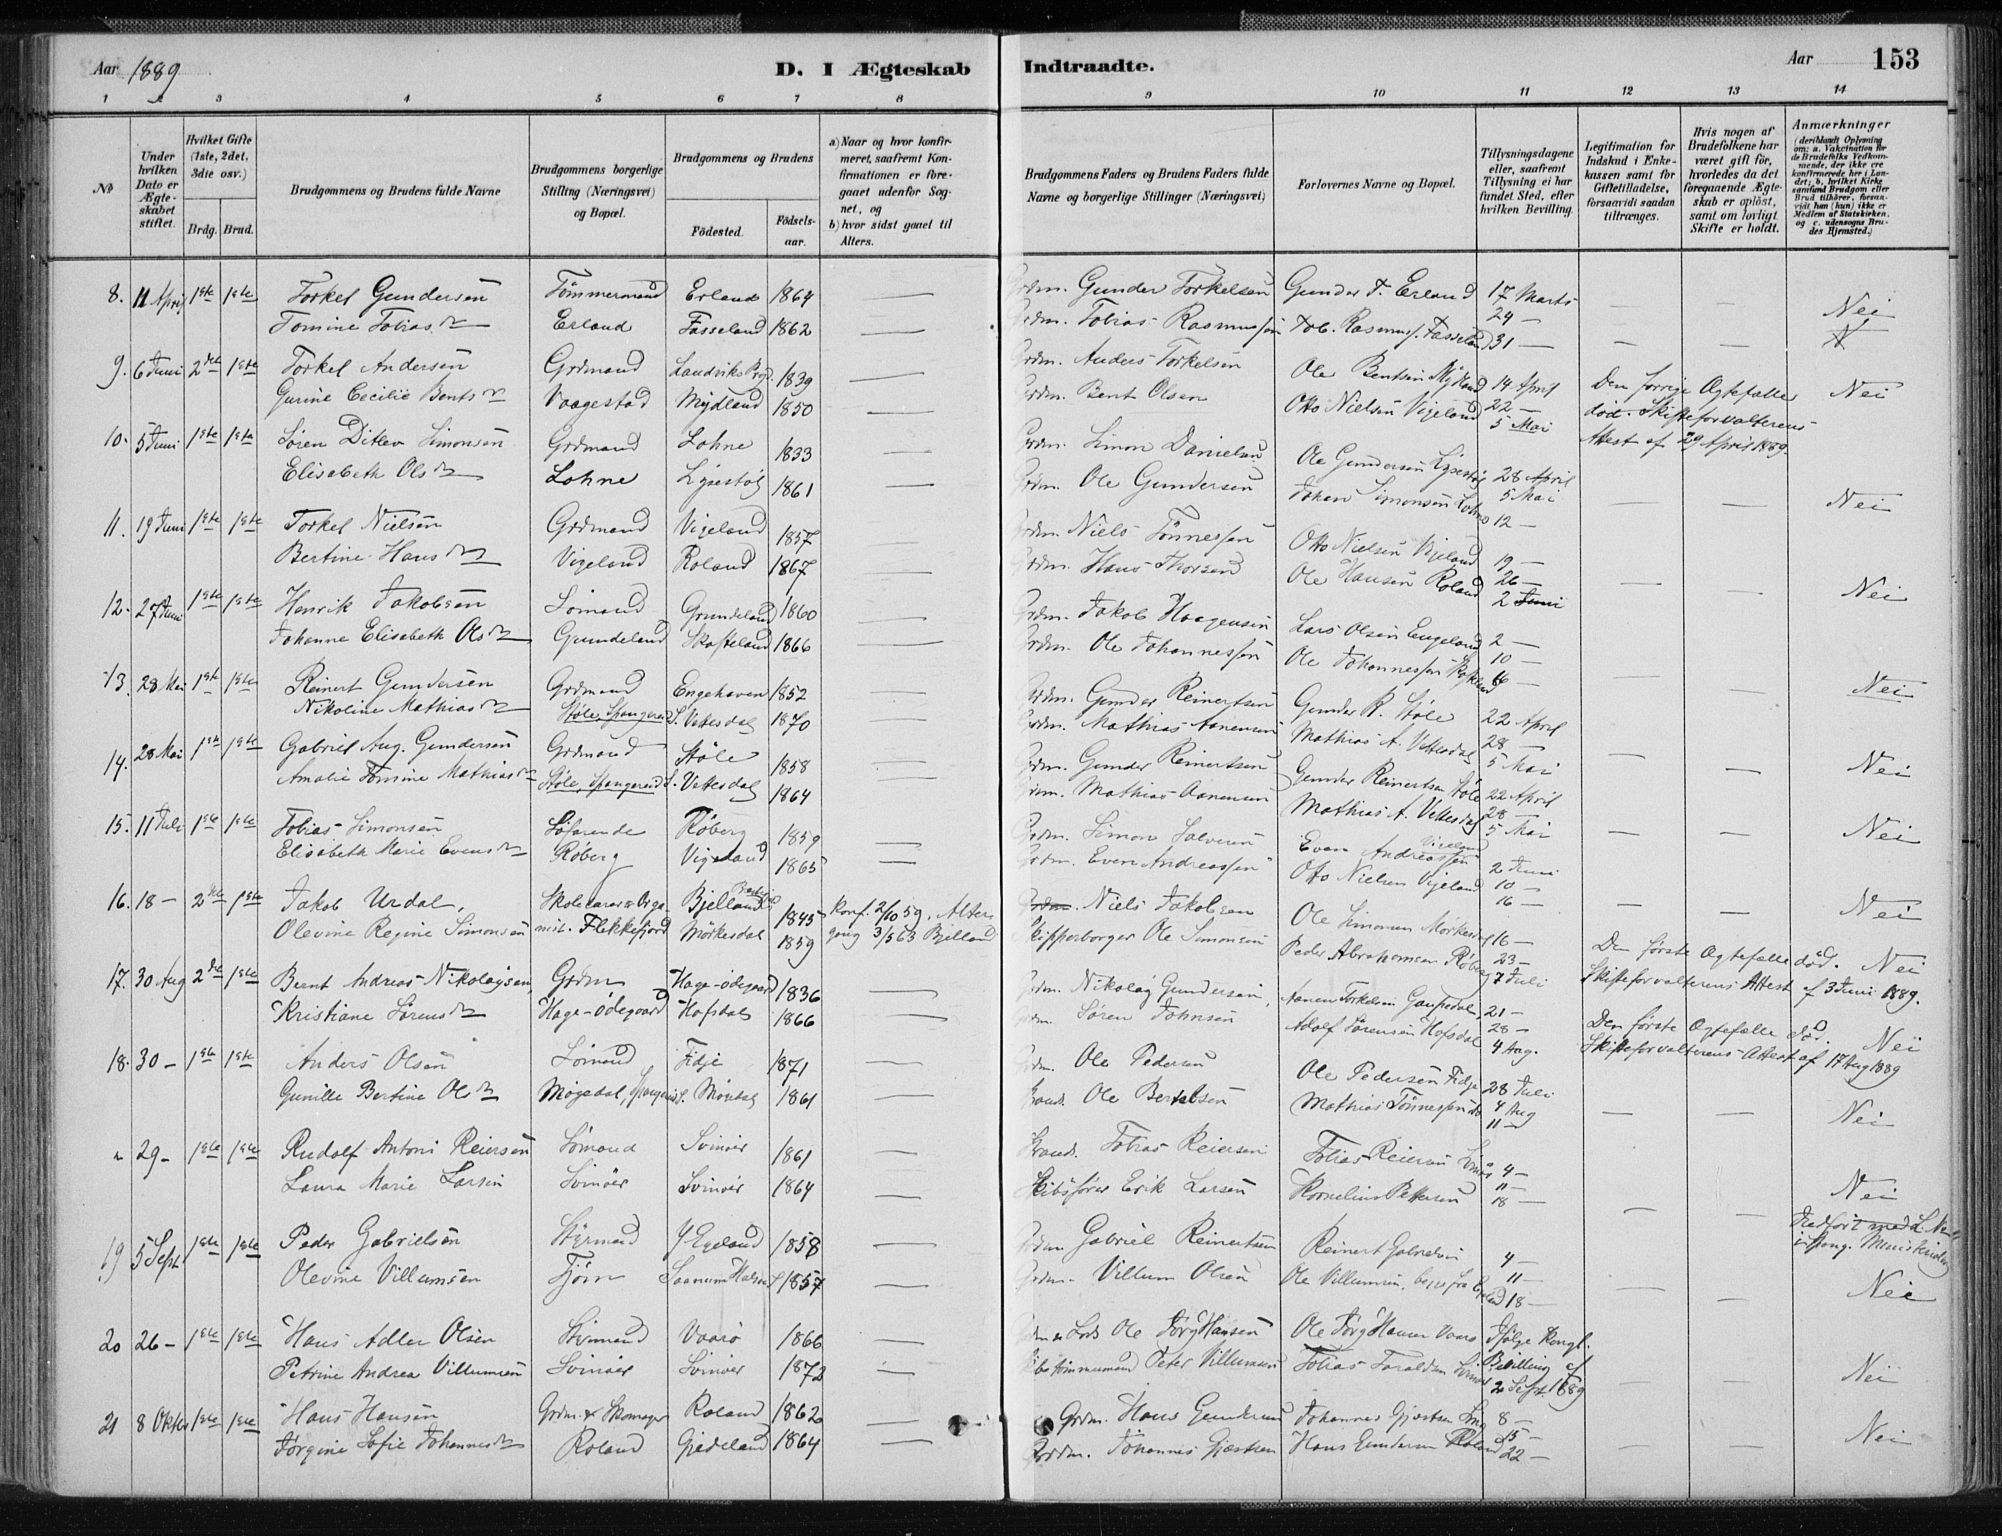 Aar 1889 D. I Ægteskab Indtraadte. Aar 153
1 2 3 4 5 6 7 8 9 10 11 12 13 14
No
Under hvilken Dato er Ægteskabet stiftet.
Hvilket Gifte (1ste, 2det, 3die osv.)
Brdg. Brud.
Brudgommens og Brudens fulde Navne
Brudgommens borgerlige Stilling (Næringsvei) og Bopæl.
Brudgommens og Brudens
Fødested. Fødselsaar.
a) Naar og hvor konfirmeret, saafremt Konfirmationen er foregaaet udenfor Sognet, og
b) hvor sidst gaaet til Alters.
Brudgommens Faders og Brudens Faders fulde Navne og borgerlige Stillinger (Næringsvei)
Forlovernes Navne og Bopæl.
Tillysningsdagene eller, saafremt Tillysning ei har fundet Sted, efter hvilken Bevilling.
Legitimation for Indskud i Enkekassen samt for Giftetilladelse, forsaavidt saadan tiltrænges.
Hvis nogen af Brudefolkene har været gift før, hvorledes da det foregaaende Ægteskab er opløst, samt om lovligt Skifte er holdt.
Anmærkninger
8. 11 April 1ste 1ste Torkel Gundersen Tømmermand Erland 1864 — Grdm. Gunder Torkelsen Gunder T. Erland 17 Marts — — Nei
Tomine Tobiasdtr Erland Fasseland 1862 — Grdm. Tobias Rasmussen Tob. Rasmuss. Fasseland 24 — 31 —
9. 6 Juni 2det 1ste Torkel Andersen Grdmand Landviks Prgd. 1839 — Grdm. Anders Torkelsen Ole Bentsen Mydland 14 April Den forrige Ægtefælle Nei
Gurine Cecilie Bentsdtr Vaagestad Mydland 1850 — Grdm. Bent Olsen Otto Nielsen Vigeland 22 — 5 Mai død. Skifteforvalterens Attest af 29 April 1889.
10. 5 Juni 1ste 1ste Søren Ditlev Simonsen Grdmand Lohne 1833 — Grdm. Simon Danielsen Ole Gundersen 28 April
Elisabeth Olsdtr Lohne 1861 — Grdm. Ole Gundersen Johan Simonsen Lohne 5 Mai 12 — — — Nei
11. 19 Juni 1ste 1ste Torkel Nielsen Grdmand Vigeland 1857 — Grdm. Niels Tønnessen Otto Nielsen Vigeland 19 —
Bertine Hansdtr Vigeland Roland 1867 — Grdm. Hans Thorsen Ole Hansen Roland 26 — 2 Juni — — Nei
12. 27 Juni 1ste 1ste Henrik Jakobsen Sømand Grundeland 1860 — Grdm. Jakob Haagensen Lars Olsen Engeland 2 —
Johanne Elisabeth Olsdtr Gundeland Skofteland 1866 — Grdm. Ole Johannessen Ole Johannessen 10 — 16 — Nei
13. 28 Mai 1ste 1ste Reinert Gundersen Grdmand Engehaven 1852 — Grdm. Gunder Reinertsen Gunder R. Støle 22 April
Nikoline Mathiasdtr Støle, Spangereid S. Vettesdal 1870 — Grdm. Mathias Aanensen Mathias A. Vettesdal 28 — 5 Mai — — Nei
14. 28 Mai 1ste 1ste Gabriel Aug. Gundersen Grdmand Støle 1858 — Grdm. Gunder Reinertsen Gunder Reinertsen Støle 22 April
Amalie Tomine Mathiasdtr Støle, Spangereid S. Vettesdal 1864 — Grdm. Mathias Aanensen Mathias A. Vettesdal 28 — 5 Mai — — Nei
15. 11 Juli 1ste 1ste Tobias Simonsen Søfarende Røberg 1859 — Grdm. Simon Salvesen Even Andreassen Vigeland 2 Juni
Elisabeth Marie Evensdtr Røberg Vigeland 1865 — Grdm. Even Andreassen Otto Nielsen Vigeland 10 — 16 — — — Nei
16. 18 — 2det 1ste Jakob Urdal, Skolelærer & Orga- Bjelland 1845 Konf. 2/10 59. Alter- Niels Jakobsen Ole Simonsen Mørkesdal 16 — Den første Ægtefælle død. Nei
Olevine Regine Simonsen nist. Flekkefjord Mørkesdal 1859 gang 3/5 63 Bjelland Skipperborger Ole Simonsen Peder Abrahamsen Røberg 23 — 7 Juli Skifteforvalterens Attest af 3 Juni 1889.
17. 30 Aug 2det 1ste Bernt Andreas Nikolaysen, Grdm Hage-ødegaard 1836 — Grdm. Nikolay Gundersen, Aanen Torkelsen Gaupedal 21 — Den første Ægtefælle død. Nei
Kristiane Sørensdtr Hage-ødegaard Hofsdal 1866 — Grdm. Søren Johnsen Adolf Sørensen Hofsdal 28 — 4 Aug. Skifteforvalterens Attest af 17 Aug 1889
18. 30 — 1ste 1ste Anders Olsen Sømand Fidje 1871 Grdm. Ole Pedersen Ole Pedersen Fidje 28 Juli
Gunille Bertine Olsdtr 1861 — Ole Berntsen Mathias Tønnessen 4 Aug 11 — — — Nei
" 29 — 1ste 1ste Rudolf Antoni Reiersen Sømand Svinøer 1861 — Tobias Reiersen Tobias Reiersen 4 —
Laura Marie Larsen Svinöer Svinøer 1864 — Skibsfører Erik Larsen Kornelius Pettersen 11 — 18 — — — Nei
19 5 Sept. 1ste 1ste Peder Gabrielsen Styrmand Y. Egeland 1858 — Grdm Gabriel Reinertsen Reinert Gabrielsen 4 —
Olevine Villumsen Fjörn 1857 — Grdm. Villum Olsen Ole Villumsen, 11 — 18 — Nei
20 26 — 1ste 1ste Hans Adler Olsen Styrmand Vaarø 1866 — Ole Jørg Hansen Ole Jørg Hansen Ifølge Kongl.
Petrine Andrea Villumsen Svinöer Svinöer 1872 — Peter Villumsen Tobias Bevilling af 2 Sept. 1889 — — Nei
21 8 Oktbr 1ste 1ste Hans Hansen Grdm. & Skomager Roland 1862 — Grdm. Hans Gundersen Johannes Gjertsen 8 —
Jørgine Sofie Johannesdtr Roland Gjedeland 1864 — Grdm. Johannes Gjertsen Hans Gundersen Roland 15 — 22 — — — Nei